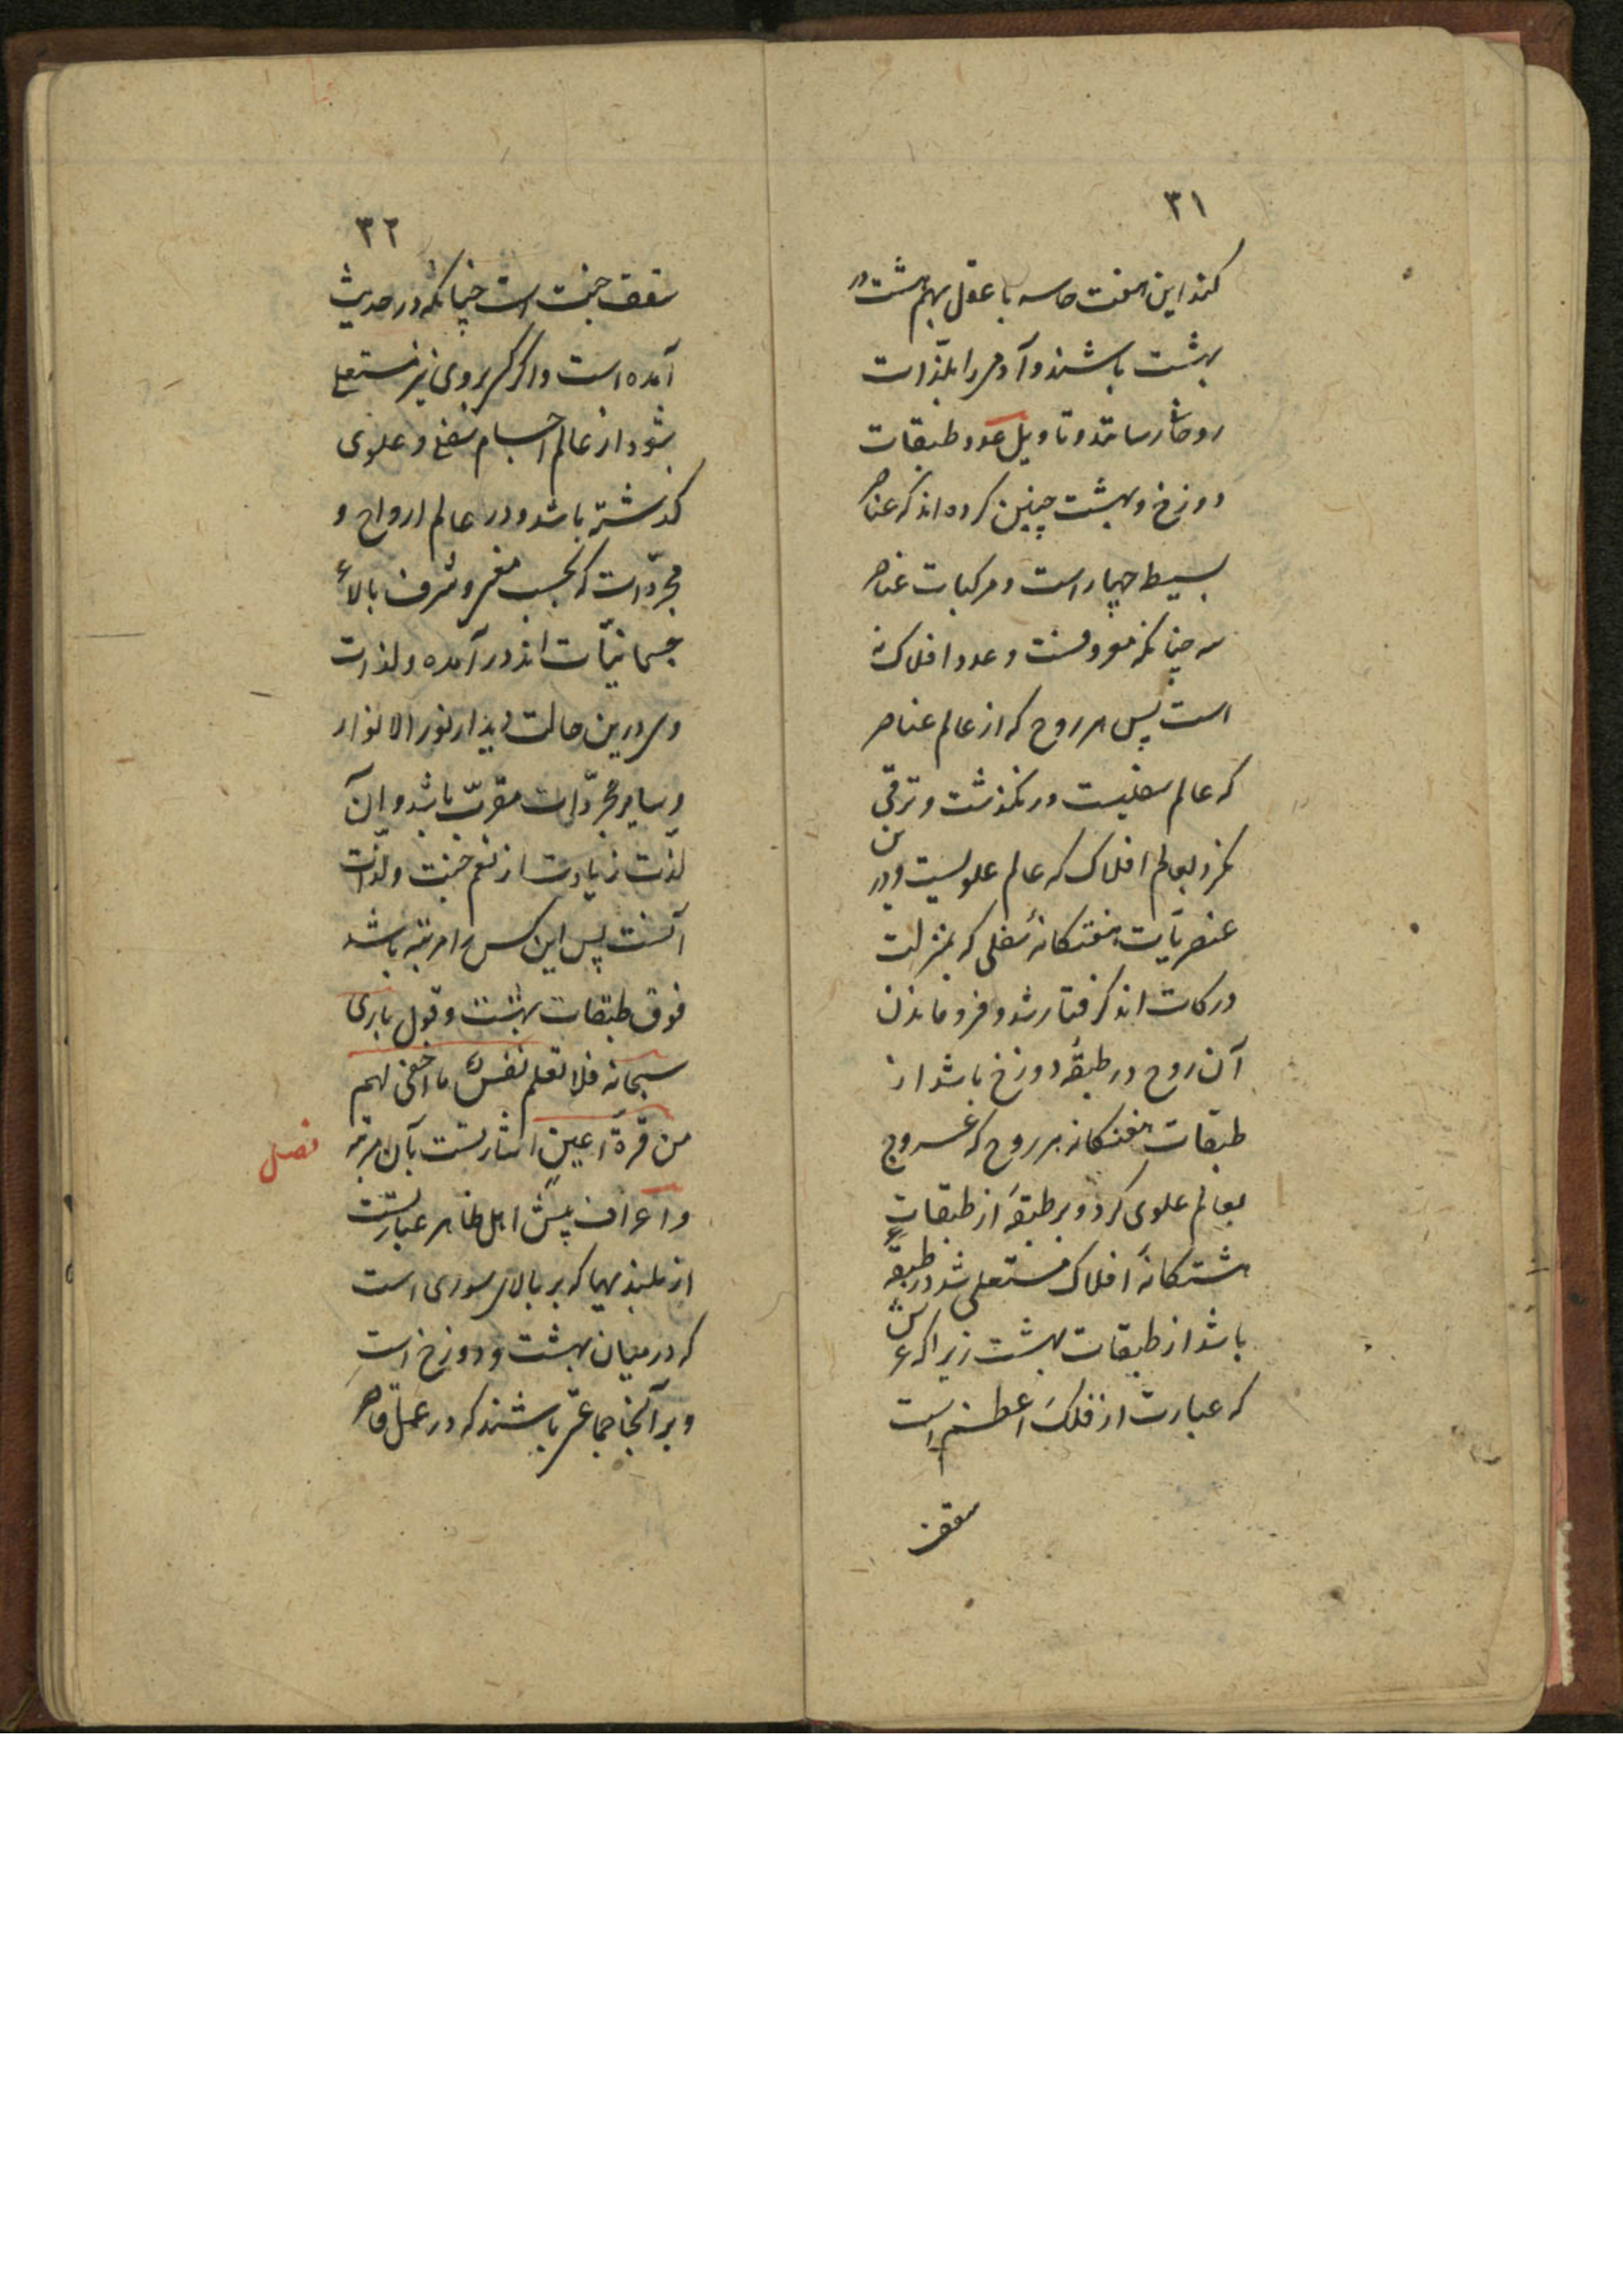 ۳۱
کند این هفت حاسه با عقل بهم هشت در
بهشت باشند و آدمی را بلذات
روحانی رسانند و تاویل عدد طبقات
دوزخ و بهشت چنین کرده اند که عناصر
بسیط چهار است و مرکبات عناصر
سه چنانکه معروفست و عدد افلاک نه
است پس هر روح که از عالم عناصر
که عالم سفلیست در نکذشت و ترقی
نکرد بعالم افلاک که عالم علویست و درین
عنصریات هفتکانهٔ سفلی که بمنزلت
درکات اند کرفتار شد و فرو ماند
آن روح در طبقهٔ دوزخ باشد از
طبقات هفتکانه هر روح که عروج
بعالم علوی کرد و بر طبقهٔ از طبقات
هشتکانهٔ افلاک مستعلی شد در طبقهٔ
باشد از طبقات بهشت زیرا که عرش
که عبارت از فلک اعظم است
سقف
۳۲
سقف جنت است چنانکه در حدیث
آمده است و اگر کسی بروی نیز مستعلی
شود از عالم اجسام سفلی و علوی
کذشته باشد و در عالم ارواح و
مجردات که بحسب معنی و شرف بالاء
جسمانیات اند در آمده و لذات
وی درین حالت دیدار نور الانوار
و سایر مجردات مقرب باشد و آن
لذت زیادت از نعم جنت و لذات
آنست پس این کس را مرتبه باشد
فوق طبقات بهشت و قول باری
سبحانه فلا تعلم نفس ما اخفی لهم
من قرة اعین اشارتست بآن مرتبه
فصل
و اعراف پیش اهل ظاهر عبارتست
از بلندیها که بر بالای سوری است
که در میان بهشت و دوزخ است
و بر آنجا جماعتی باشند که در عمل قاصر